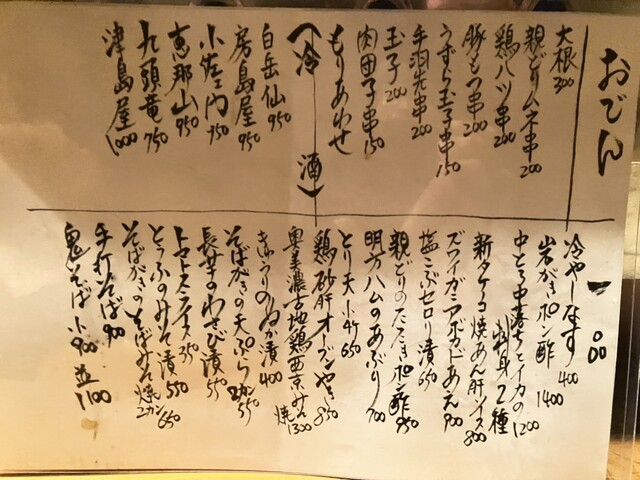 おでん
大根 300
親どりムネ串 200
鶏ハツ串 200
豚もつ串 200
うずら玉子串 150
手羽先串 200
玉子 200
肉団子串 150
もりあわせ
(冷酒)
白岳仙 950
房島屋 950
小左ェ門 750
恵那山 950
九頭竜 750
津島屋 1000
一品
冷やしなす 400
岩がきポン酢 1400
中とろ中落ちとイカの
お刺身2種 1200
新タケノコ焼あん肝ソース 800
ズワイガニアボカドあえ 900
塩こぶセロリ漬 650
親どりのたたきポン酢 950
明方ハムのあぶり 700
とり天小 650
鶏砂肝オーブンやき 850
奥美濃古地鶏西京みそ焼 1300
きゅうりのぬか漬 400
そばがきの天ぷら 2カン 550
長芋のわさび漬 550
トマトスライス 350
とうふのみそ漬 550
そばがきのそばみそ焼 2カン 650
手打そば 900
鬼そば 小900 並1100